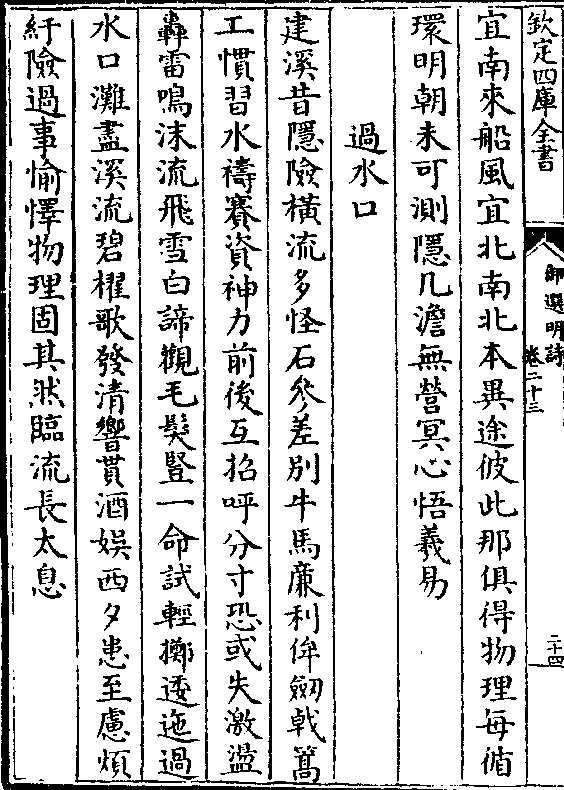 欽定四庫全書
御選明詩
卷二十三
二十四
宜南來船風宜北南北本異途彼此那俱得物理每循
環明朝未可測隱几澹無營冥心悟羲易
過水口
建溪昔隱險橫流多怪石參差別牛馬廉利侔劒戟篙
工慣習水禱賽資神力前後互招呼分寸恐或失激盪
轟雷鳴沫流飛雪白諦觀毛髮豎一命試輕擲逶迤過
水口灘盡溪流碧櫂歌發清響貰酒娛西夕患至慮煩
紆險過事愉懌物理固其然臨流長太息